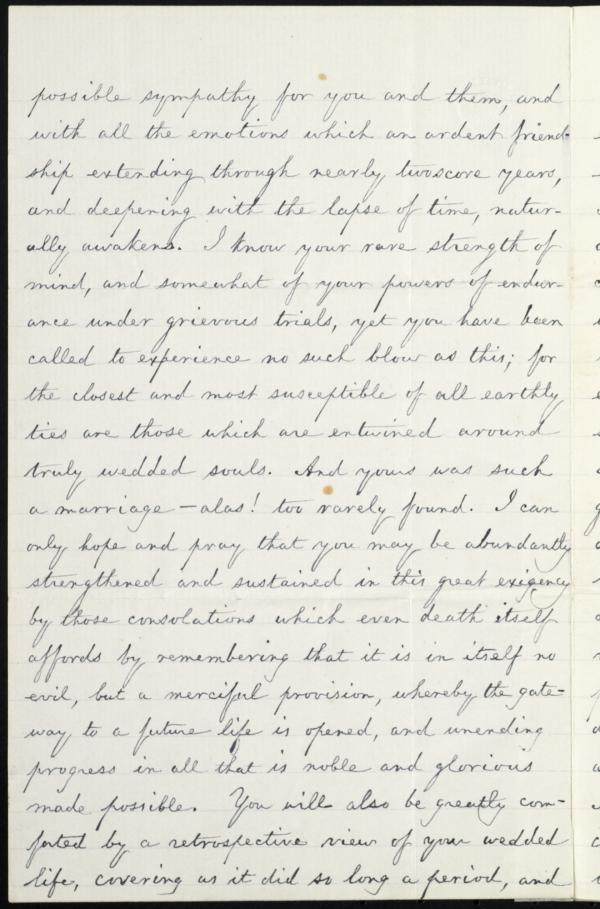 possible sympathy for you and them, and
with all the emotions which an ardent friend-
ship extending through nearly twoscore years,
and deepening with the lapse of time, natur-
ally awakens. I know your rare strength of
mind, and somewhat of your powers of endur-
ance under grievous trials, yet you have been
called to experience no such blow as this; for
the closest and most susceptible of all earthly
ties are those which are entwined around
truly wedded souls. And yours was such
a marriage—alas! too rarely found. I can
only hope and pray that you may be abundantly
strengthened and sustained in this great exigency
by those consolations which even death itself
affords by remembering that it is in itself no
evil, but a merciful provision, whereby the gate-
way to a future life is opened, and unending
progress in all that is noble and glorious
made possible. You will also be greatly com-
forted by a retrospective view of your wedded
life, covering as it did so long a period, and